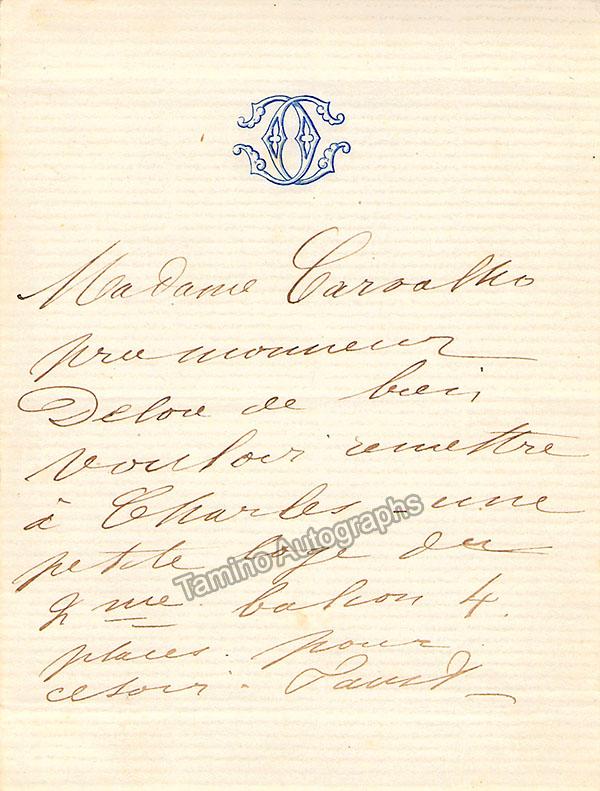 Madame Carvalho
prie monsieur
Delou de bien
vouloir remettre
à Charles - une
petite loge du
2me balcon 4.
places. pour
ce soir. Faust
Tamino Autographs